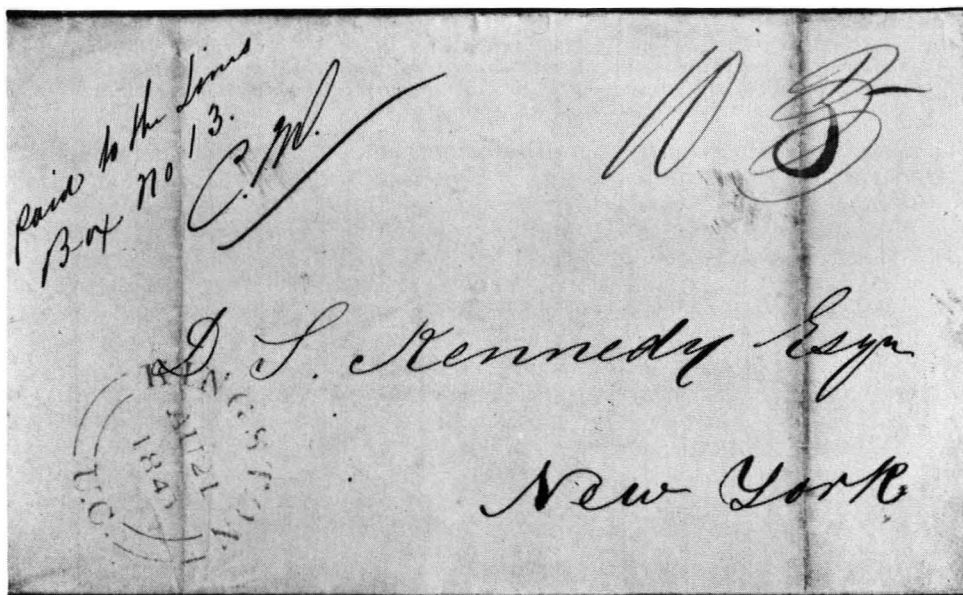 paid to the Lines
Box No 13.
D. S. Kennedy Esqr
New York
KINGSTON
AU 21
184
U.C.